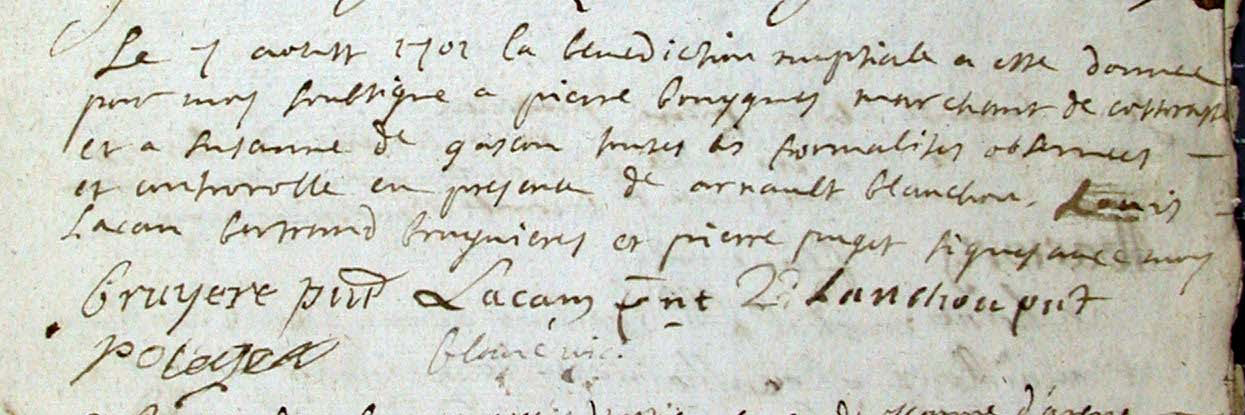 Le 7 aoust 1701 la benediction nuptiale a este donnee
par moy soubsigne a pierre bruyques marchant de
et a susanne de gascou toutes les formalites observees
et controrolle en presence de arnault blanchou, Louis
Lacam bertrand bruguieres et pierre puget signes avec moy
Bruyere pnt Lacam pnt Blanchou pnt